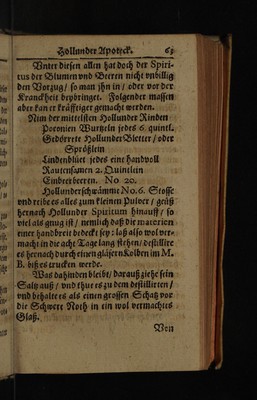 Hollunder Apoteck. 63
Vnter diesen allen hat doch der Spiri-
tus der Blumen vnd Beeren nicht vnbillig
den Vorzug/ so man jhn in/ oder vor der
Kranckheit beybringet. Folgender massen
aber kan er kräfftiger gemacht werden.
Nim der mittelsten Hollunder Rinden
Poeonien Wurtzeln jedes 6 quintl.
Gedörrete Hollunder Bletter/ oder
Sprößlein
Lindenblüet jedes eine handvoll
Rautensamen 2. Quintlein
Einbeerbeeren. No 20.
Hollunderschwämme No. 6. Stosse
vnd reibe es alles zum kleinen Pulver/ geuß
hernach Hollunder Spiritum hinauff/ so
viel als gnug ist/ nemlich daß die materien
einer handbreit bedeckt sey: laß also wol ver-
macht in die acht Tage lang stehen/ destillire
es hernach durch einen gläsern Kolben im M.
B. biß es trucken werde.
Was dahinden bleibt/ darauß ziehe sein
Saltz auß/ vnd thue es zu dem destillirten/
vnd behalte es als einen grossen Schatz vor
die Schwere Noth in ein wol vermachtes
Glaß.
Von